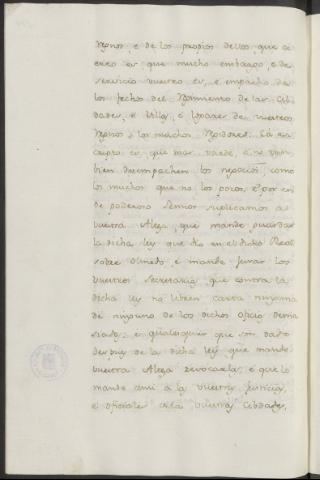 Regnos, e de los propios dellos que a
creco es que mucho embargo, e de
servicio vuestro es, e empacho de
los fechos del Regimiento de las Cib
dades, e Villas, e Lugares de vuestros
Regnos, los muchos Regidores. Ca es
cierto es, que mas tarde, e
bien desempachen los negocios como
los muchos que no los pocos, e por en
de poderoso Señor suplicamos a
vuestra Alteza, que mande guardar
la dicha ley que dio en el dicho Real
sobre Olmedo, e mande jurar los
vuestros Secretarios que contra la
dicha ley no libren carta ninguna
de ninguno de los dichos oficios dema
siados, e qualesquier que son dados
despues de la dicha ley que mande
vuestra Alteza revocarla, e que lo
mande ansi a la vuestra justicia,
e oficiales de la vuestras Cibdades,